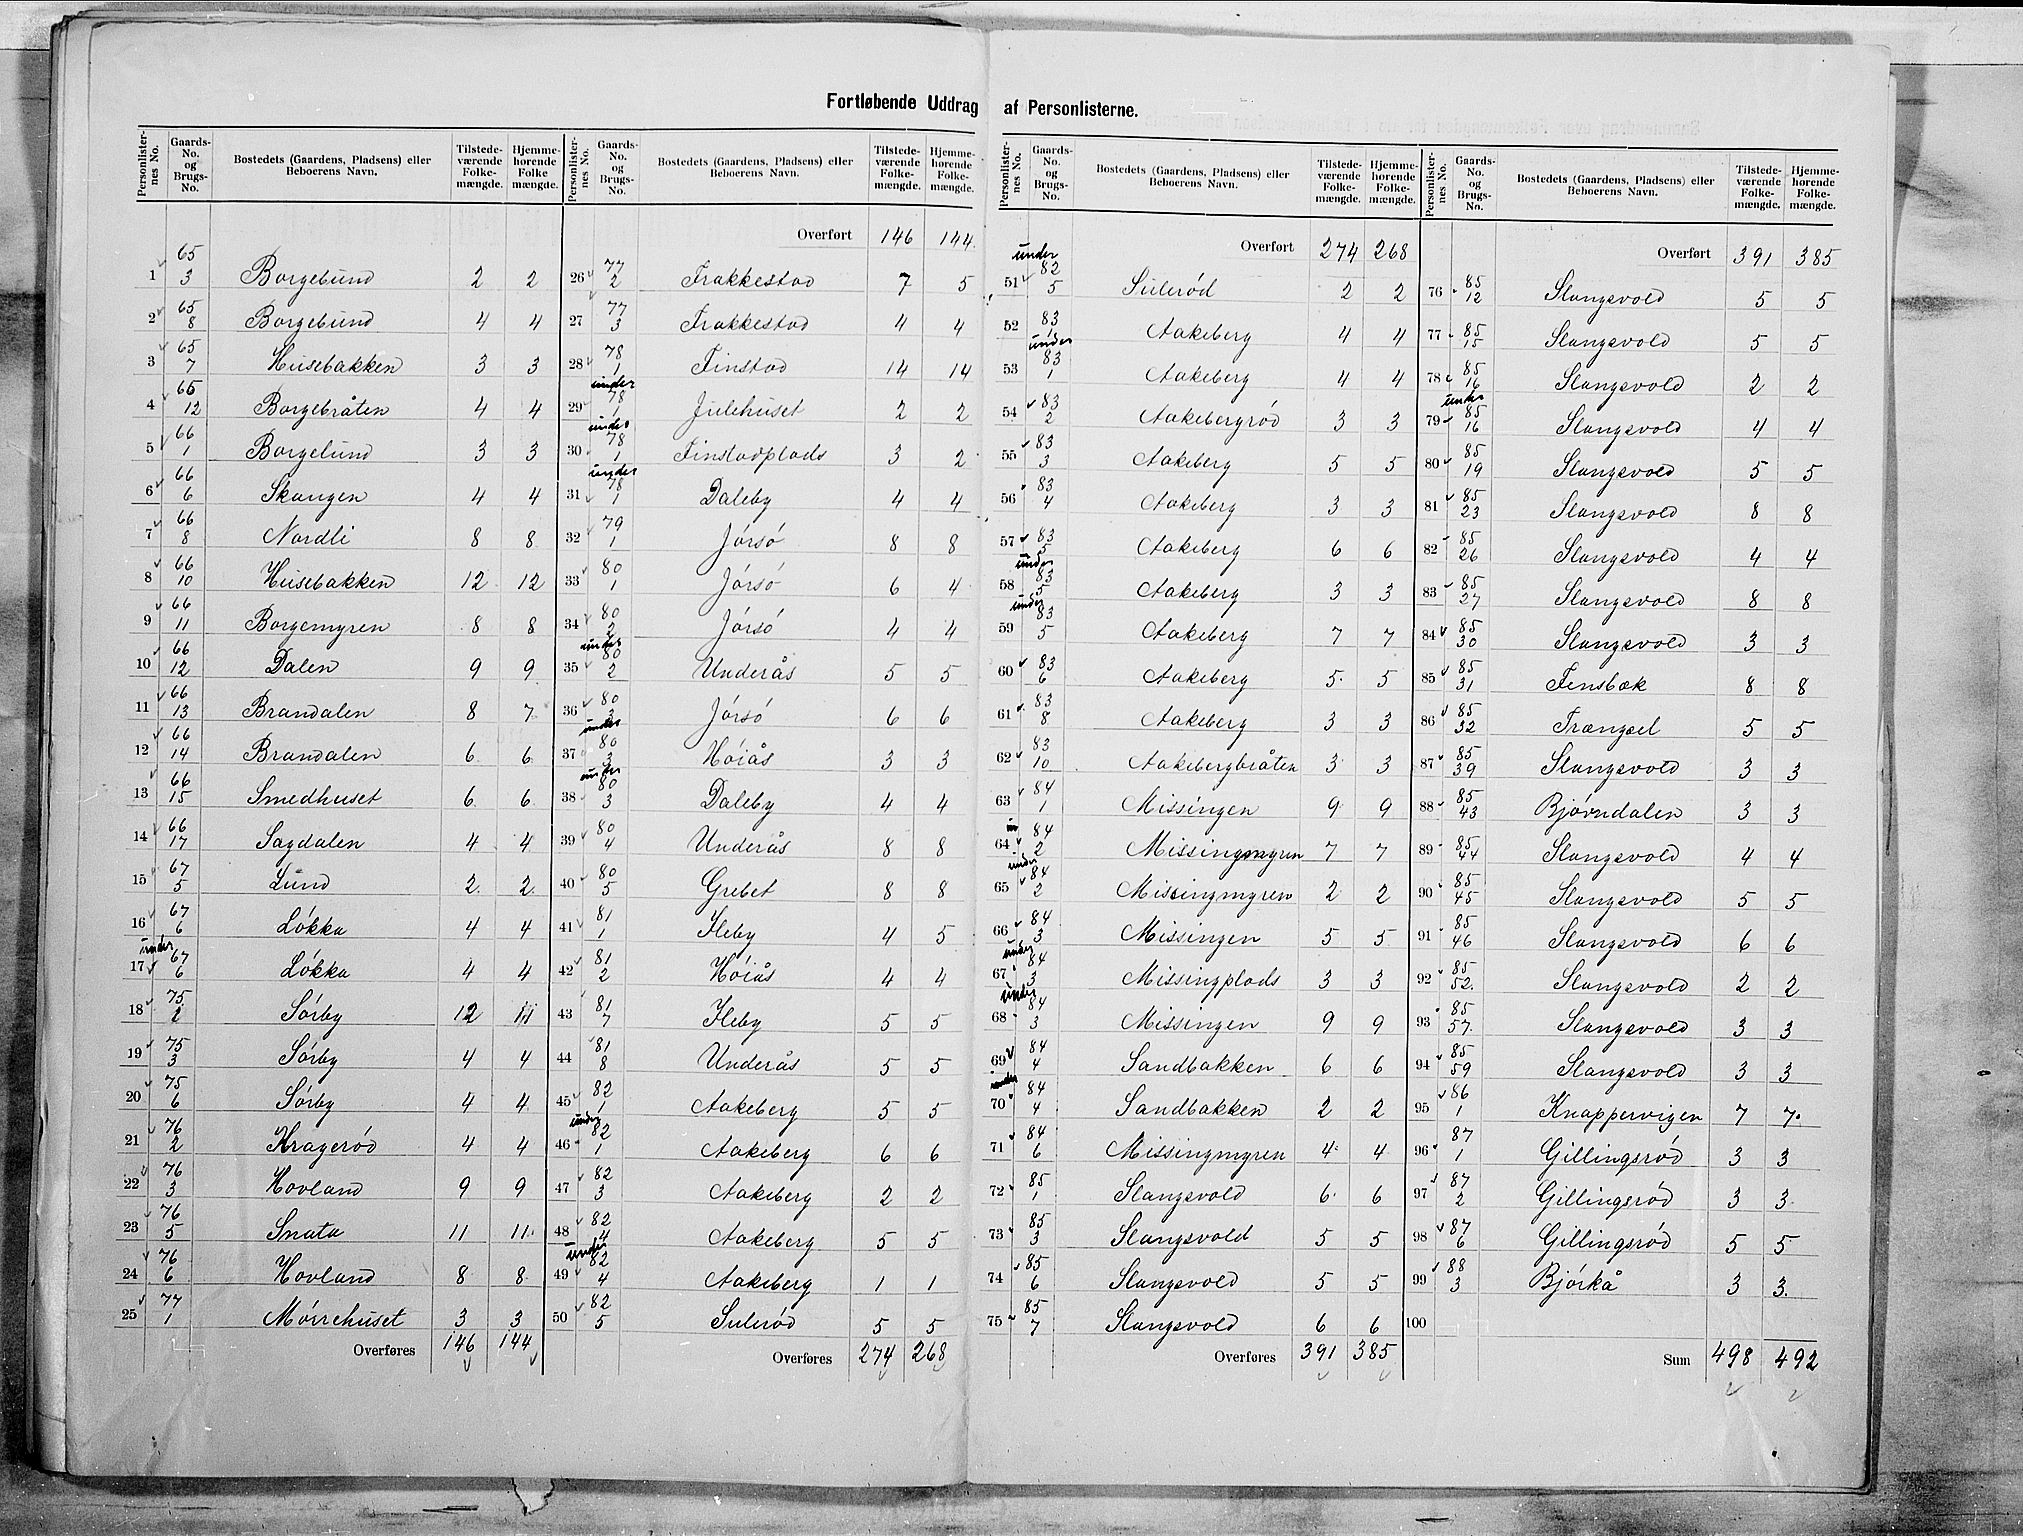 Fortløbende Uddrag af Personlisterne.
Personlisternes No. | Gaards-No. og Brugs-No. | Bostedets (Gaardens, Pladsens) eller Beboerens Navn. | Tilstedeværende Folkemængde. | Hjemmehørende Folkemængde.
1 65/3 Borgelund 2 2
2 65/8 Borgelund 4 4
3 65/7 Husebakken 3 3
4 65/12 Borgebråten 4 4
5 66/1 Borgelund 3 3
6 66/6 Skangen 4 4
7 66/8 Nordli 8 8
8 66/10 Husebakken 12 12
9 66/11 Borgemyren 8 8
10 66/12 Dalen 9 9
11 66/13 Brandalen 8 7
12 66/14 Brandalen 6 6
13 66/15 Smedhuset 6 6
14 66/17 Sagdalen 4 4
15 67/5 Lund 2 2
16 67/6 Løkka 4 4
17 under 67/6 Løkka 4 4
18 75/2 Sørby 12 11
19 75/3 Sørby 4 4
20 75/6 Sørby 4 4
21 76/2 Kragerød 4 4
22 76/3 Hovland 9 9
23 76/5 Snata 11 11
24 76/6 Hovland 8 8
25 77/1 Mørrehuset 3 3
Overføres 146 144
Personlisternes No. | Gaards-No. og Brugs-No. | Bostedets (Gaardens, Pladsens) eller Beboerens Navn. | Tilstedeværende Folkemængde. | Hjemmehørende Folkemængde.
Overført 146 144
26 77/2 Frakkestad 7 5
27 77/3 Frakkestad 4 4
28 78/1 Finstad 14 14
29 under 78/1 Julehuset 2 2
30 under 78/1 Finstadplads 3 2
31 under 78/1 Daleby 4 4
32 79/1 Jørsø 8 8
33 80/1 Jørsø 6 4
34 80/2 Jørsø 4 4
35 under 80/2 Underås 5 5
36 80/3 Jørsø 6 6
37 under 80/3 Høiås 3 3
38 under 80/3 Daleby 4 4
39 80/4 Underås 8 8
40 80/5 Grebet 8 8
41 81/1 Ileby 4 5
42 81/2 Høiås 4 4
43 81/7 Ileby 5 5
44 81/8 Underås 5 5
45 82/1 Aakeberg 5 5
46 under 82/1 Aakeberg 6 6
47 82/3 Aakeberg 2 2
48 82/4 Aakeberg 5 5
49 under 82/4 Aakeberg 1 1
50 82/5 Sulerød 5 5
Overføres 274 268
Personlisternes No. | Gaards-No. og Brugs-No. | Bostedets (Gaardens, Pladsens) eller Beboerens Navn. | Tilstedeværende Folkemængde. | Hjemmehørende Folkemængde.
Overført 274 268
51 under 82/5 Sulerød 2 2
52 83/1 Aakeberg 4 4
53 under 83/1 Aakeberg 4 4
54 83/2 Aakebergrød 3 3
55 83/3 Aakeberg 5 5
56 83/4 Aakeberg 3 3
57 83/5 Aakeberg 6 6
58 under 83/5 Aakeberg 3 3
59 under 83/5 Aakeberg 7 7
60 83/6 Aakeberg 5 5
61 83/8 Aakeberg 3 3
62 83/10 Aakebergbråten 3 3
63 84/1 Missingen 9 9
64 84/2 Missingmyren 7 7
65 under 84/2 Missingmyren 2 2
66 84/3 Missingen 5 5
67 under 84/3 Missingplads 3 3
68 under 84/3 Missingen 9 9
69 84/4 Sandbakken 6 6
70 under 84/4 Sandbakken 2 2
71 84/6 Missingmyren 4 4
72 85/1 Slangsvold 6 6
73 85/3 Slangsvold 5 5
74 85/6 Slangsvold 5 5
75 85/7 Slangsvold 6 6
Overføres 391 385
Personlisternes No. | Gaards-No. og Brugs-No. | Bostedets (Gaardens, Pladsens) eller Beboerens Navn. | Tilstedeværende Folkemængde. | Hjemmehørende Folkemængde.
Overført 391 385
76 85/12 Slangsvold 5 5
77 85/15 Slangsvold 5 5
78 85/16 Slangsvold 2 2
79 under 85/16 Slangsvold 4 4
80 85/19 Slangsvold 5 5
81 85/23 Slangsvold 8 8
82 85/26 Slangsvold 4 4
83 85/27 Slangsvold 8 8
84 85/30 Slangsvold 3 3
85 85/31 Fensbæk 8 8
86 85/32 Trængsel 5 5
87 85/39 Slangsvold 3 3
88 85/43 Bjørndalen 3 3
89 85/44 Slangsvold 4 4
90 85/45 Slangsvold 5 5
91 85/46 Slangsvold 6 6
92 85/52 Slangsvold 2 2
93 85/57 Slangsvold 3 3
94 85/59 Slangsvold 3 3
95 86/1 Knappervigen 7 7
96 87/1 Gillingsrød 3 3
97 87/2 Gillingsrød 3 3
98 87/6 Gillingsrød 5 5
99 88/3 Bjørkå 3 3
100
Sum 498 492